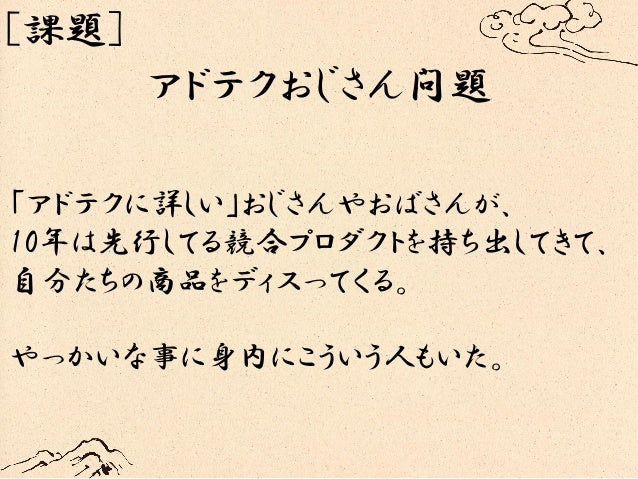 ［課題］
アドテクおじさん問題
「アドテクに詳しい」おじさんやおばさんが、
10年は先行してる競合プロダクトを持ち出してきて、
自分たちの商品をディスってくる。
やっかいな事に身内にこういう人もいた。